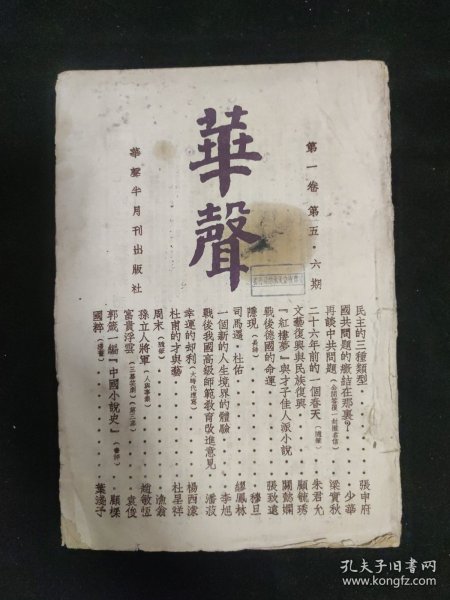 華聲
第一卷 第五·六期
華聲半月刊出版社
民主的三種類型 張申府
國共問題的癥結在那裏？ 少華
再談中共問題 梁實秋
二十六年前的一個春天（隨筆） 朱君允
文藝復興與民族復興 顧毓琇
『紅樓夢』與才子佳人派小說 關懿嫻
戰後德國的命運 張致遠
隱現（長詩） 穆旦
司馬遷·杜佑 繆鳳林
一個新的人生境界的體驗 李旭
戰後我國高級師範教育改進意見 潘菽
幸運的却利 楊西濛
杜甫的才與藝 杜呈祥
周末（隨筆） 漁翁
孫立人將軍（人與事業） 趙敏恆
富貴浮雲（三幕笑劇）（第三幕） 袁俊
郭箴一編『中國小說史』（書評） 顧樑
國粹（漫畫） 葉淺予
孔夫子旧书网
www.kongfz.com